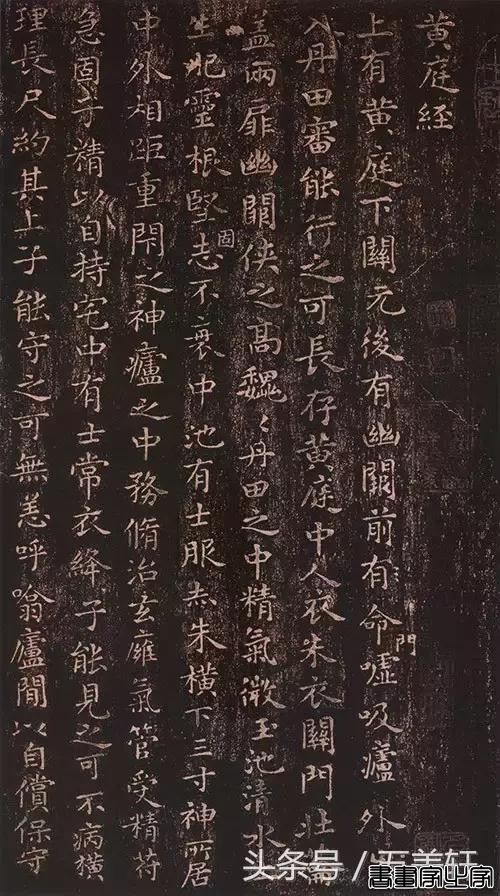 黄庭経
上有黄庭下關元後有幽闕前有命門噓吸廬外出
入丹田審能行之可長存黄庭中人衣朱衣關門壯籥
盖兩扉幽闕俠之高魏〻丹田之中精氣微玉池清水上
生肥靈根堅固志不衰中池有士服赤朱橫下三寸神所居
中外相距重閇之神廬之中務脩治玄廱氣管受精苻
急固子精以自持宅中有士常衣絳子能見之可不病橫
理長尺約其上子能守之可無恙呼噏廬閒以自償保守
头条号/美轩
書畫家